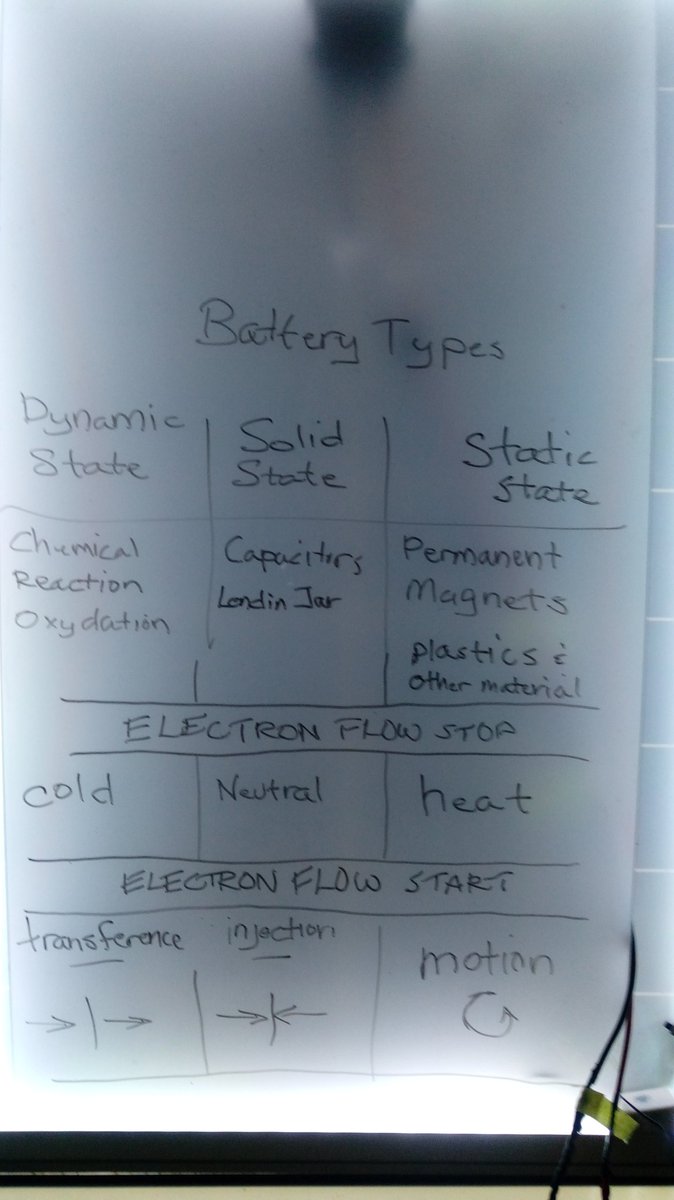 Battery Types
Dynamic State
Solid State
Static State
Chemical Reaction Oxydation
Capacitors
Londin Jar
Permanent Magnets
Plastics & other material
ELECTRON FLOW STOP
cold
Neutral
heat
ELECTRON FLOW START
transference
injection
motion